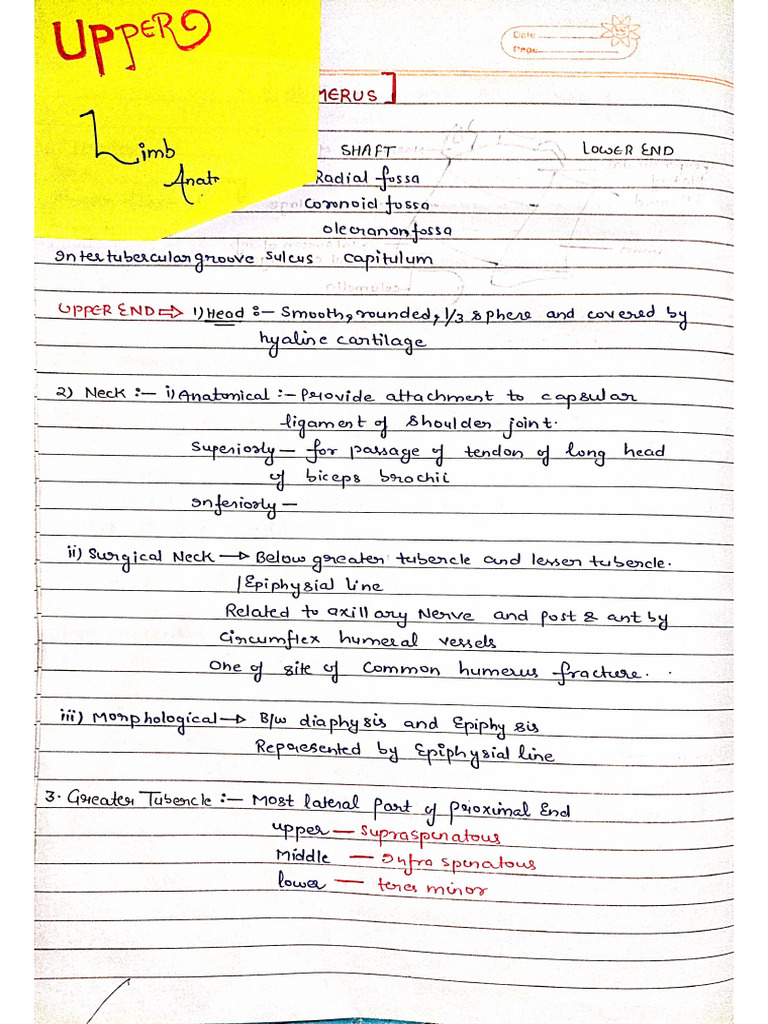 UPPER
Limb
Anat
Date
Page
MERUS]
SHAFT LOWER END
Radial fossa
Coronoid fossa
olecranon fossa
Intertubercular groove sulcus capitulum
UPPER END ⇒ 1) Head :- Smooth, rounded, 1/3 sphere and covered by
hyaline cartilage
2) Neck :- i) Anatomical :- Provide attachment to capsular
ligament of shoulder joint.
Superiorly — for passage of tendon of long head
of biceps brachii
Inferiorly —
ii) Surgical Neck → Below greater tubercle and lesser tubercle.
/Epiphysial line
Related to axillary Nerve and post & ant by
Circumflex humeral vessels
One of site of Common humerus fracture.
iii) Morphological → B/w diaphysis and Epiphysis
Represented by Epiphysial line
3. Greater Tubercle :- Most lateral part of proximal End
upper — Supraspenatous
Middle — Infra spenatous
lower — teres minor